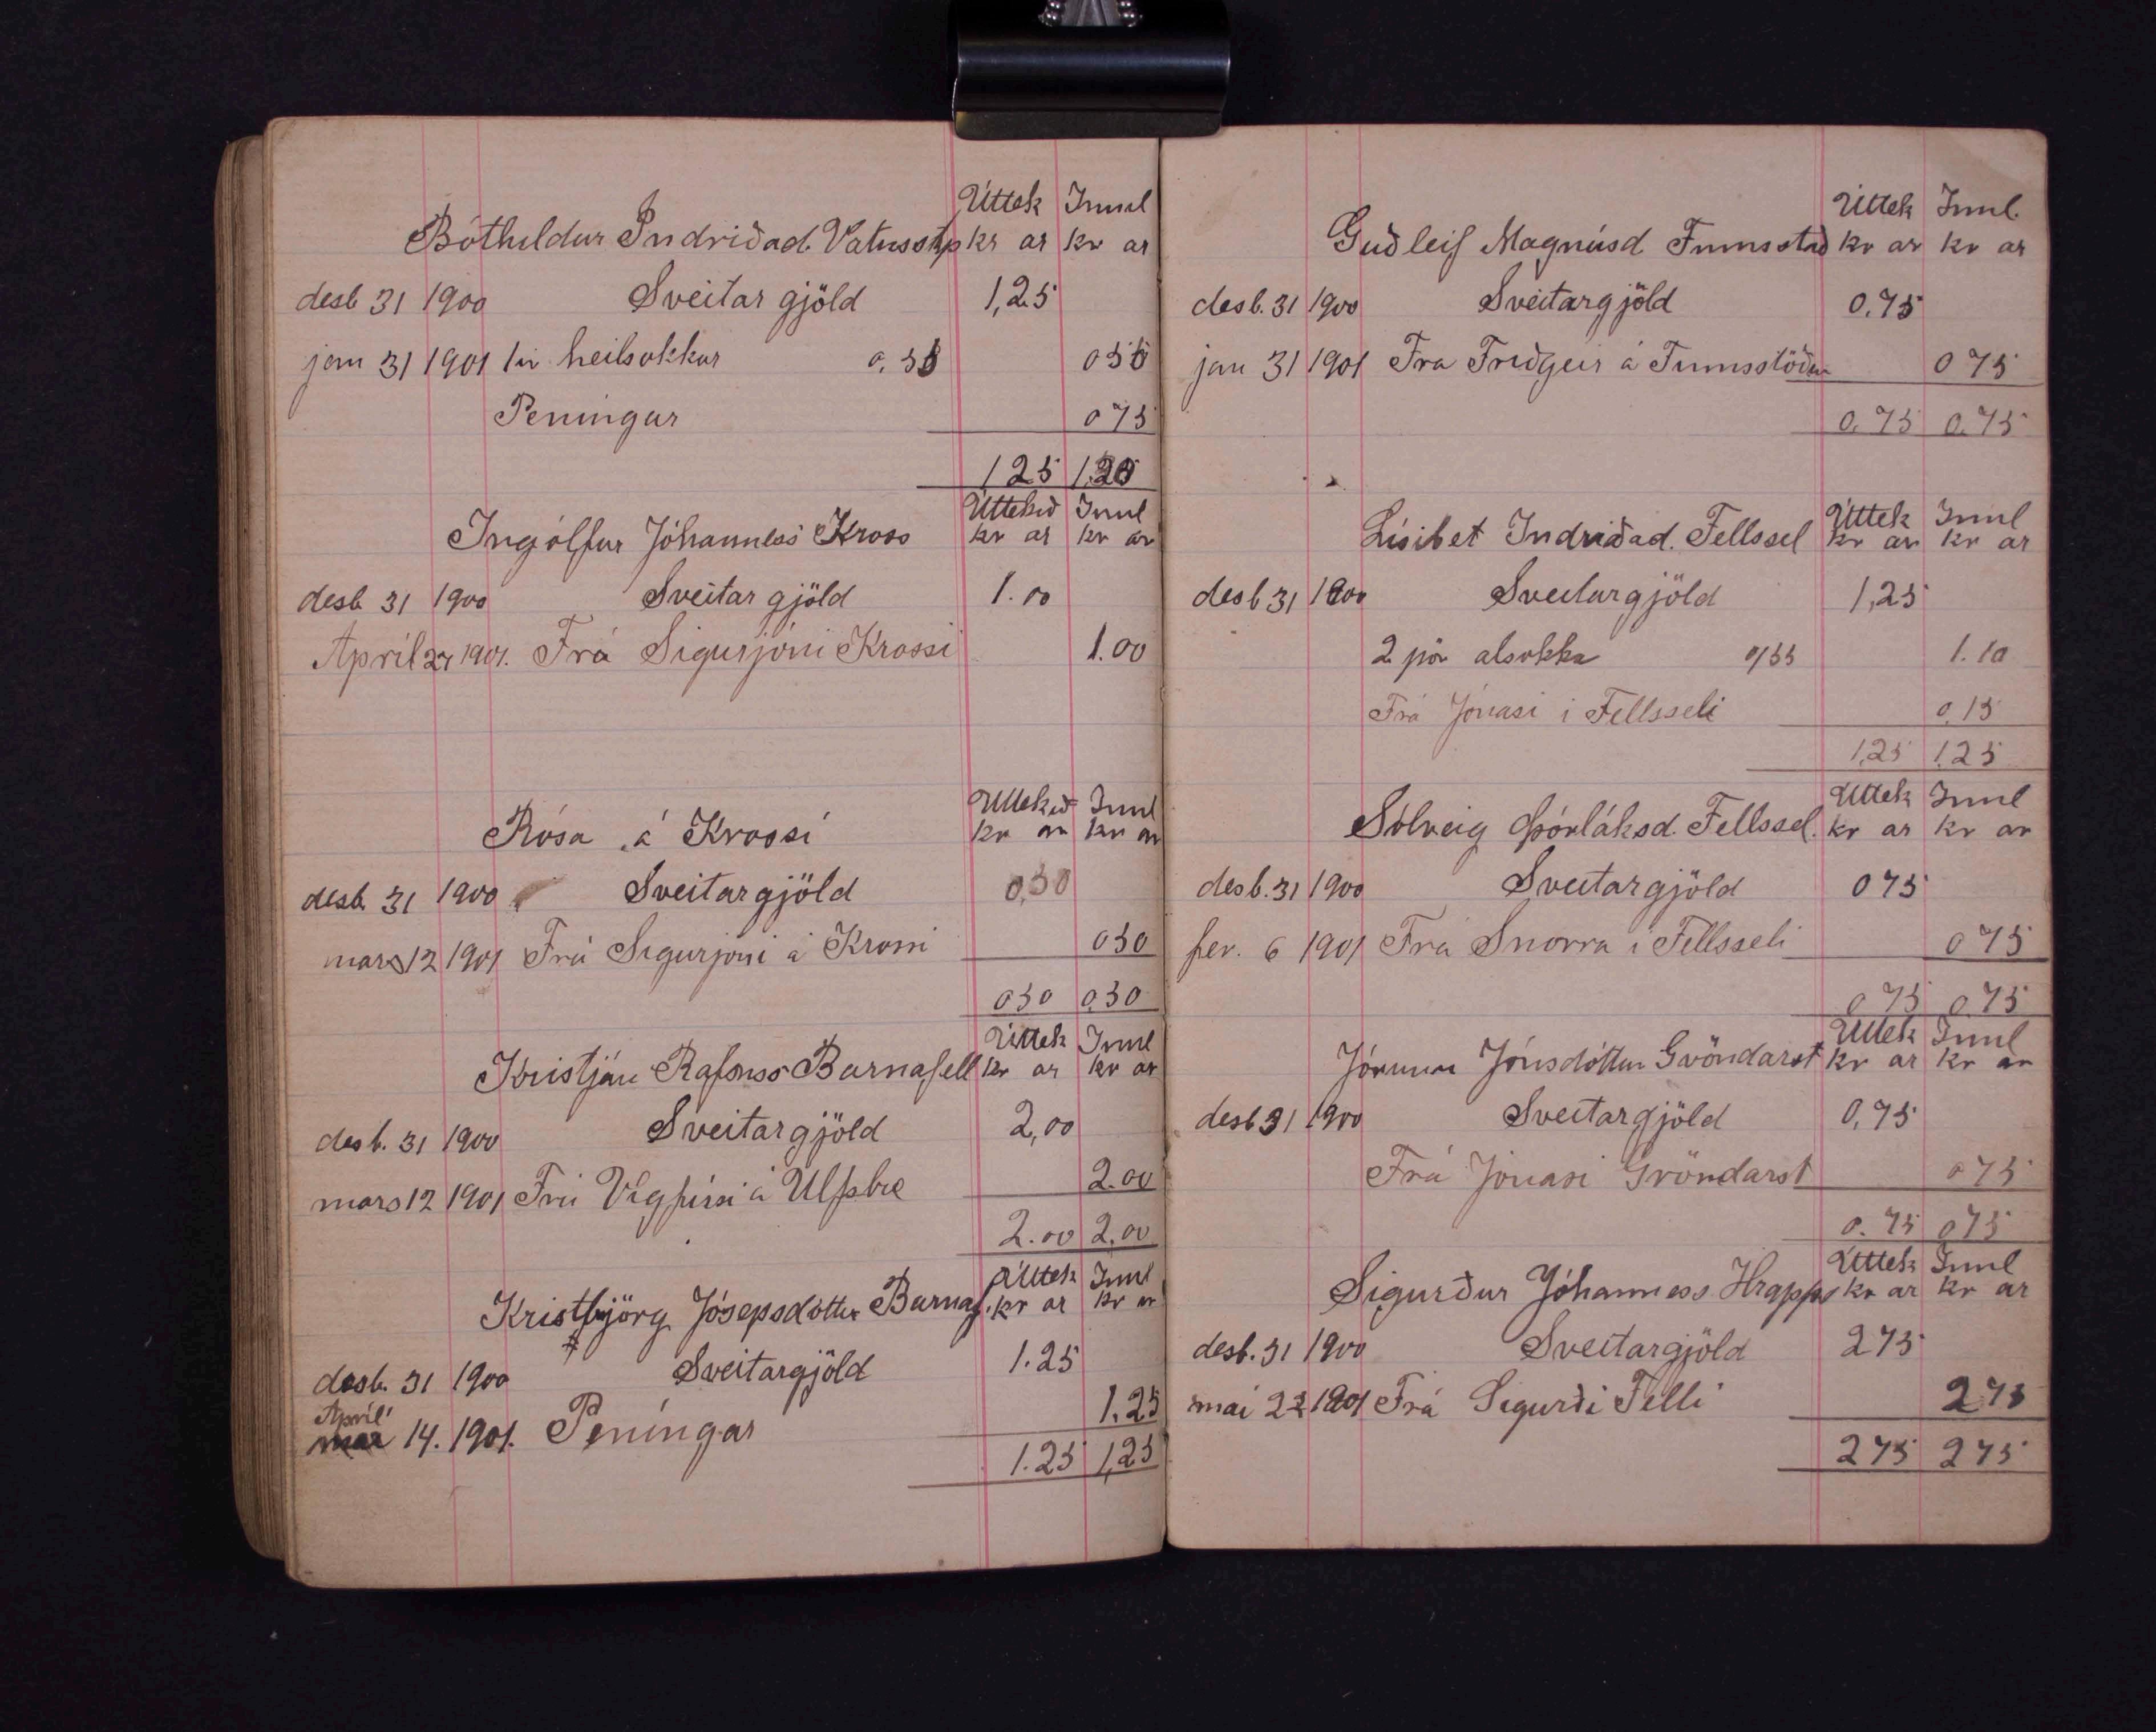 Úttek Innl
Bóthildur Indriðad. Vatnsstp kr ar kr ar
desb 31 1900 Sveitargjöld 1,25
jan 31 1901 1 pr heilsokkar 0.50 0 50
Peningar 0 75
1 25 1.25
Úttekið Innl
Ingólfur Jóhanness Kross kr ar kr ar
desb 31 1900 Sveitargjöld 1.00
Apríl 27 1901. Frá Sigurjóni Krossi 1.00
Úttekið Innl
Rósa á Krossi kr ar kr ar
desb. 31 1900 Sveitargjöld 0,50
mars 12 1901 Frá Sigurjóni á Krossi 0 50
0 50 0.50
Úttek Innl
Kristján Rafnss Barnafell kr ar kr ar
desb. 31 1900 Sveitargjöld 2,00
mars 12 1901 Frá Vigfúsi á Úlfsbæ 2.00
2.00 2.00
Úttek Innl
Kristbjörg Jósepsdóttir Barnaf. kr ar kr ar
desb. 31 1900 Sveitargjöld 1.25
Apríl
mar 14. 1901. Peníngar 1.25
1.25 1,25
Úttek Innl.
Guðleif Magnúsd Finnsstað kr ar kr ar
desb. 31 1900 Sveitargjöld 0.75
jan 31 1901 Frá Friðgeir á Finnsstöðum 0 75
0.75 0.75
Úttek Innl
Lísibet Indriðad. Fellssel kr ar kr ar
desb 31 1900 Sveitargjöld 1,25
2 pör alsokka 0/55 1.10
Frá Jónasi i Fellsseli 0.15
1,25 1.25
Úttek Innl
Sólveig Þórláksd. Fellssel. kr ar kr ar
desb. 31 1900 Sveitargjöld 0 75
fev. 6 1901 Frá Snorra i Fellsseli 0 75
0 75 0 75
Úttek Innl
Jórunn Jónsdóttur Gvöndarst kr ar kr ar
desb 31 1900 Sveitargjöld 0,75
Frá Jónasi Gvöndarst 0 75
0.75 0 75
Úttek Innl
Sigurður Jóhanness Hrapps kr ar kr ar
desb. 31 1900 Sveitargjöld 2 75
mai 22 1901 Frá Sigurði Felli 2 75
2 75 2 75